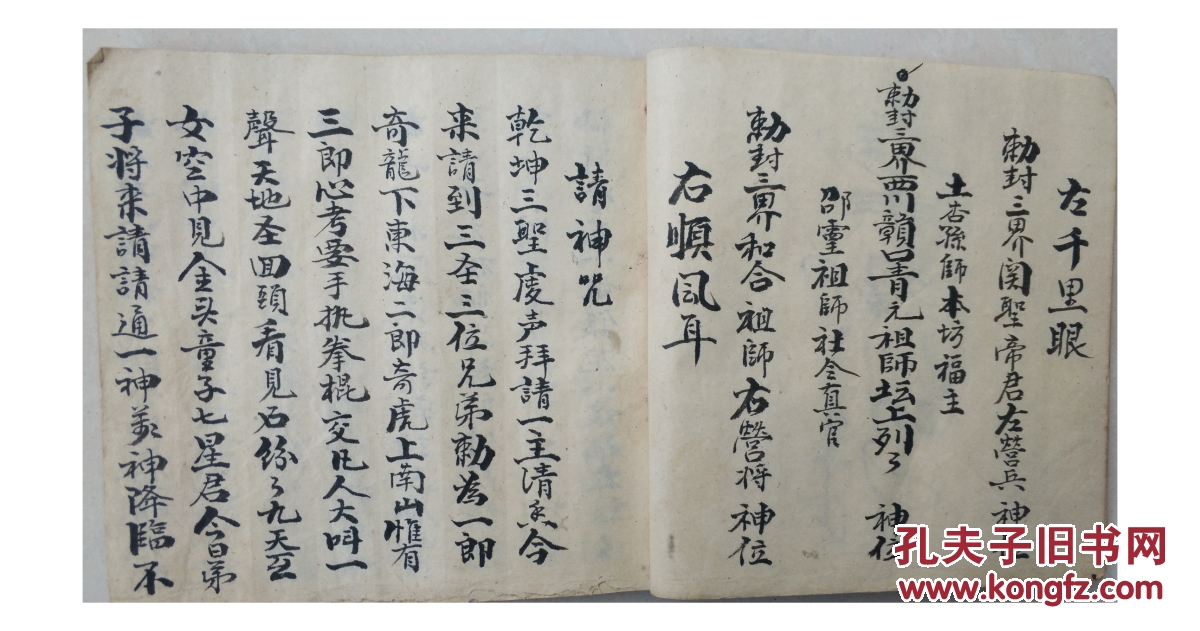 左千里眼
勅封三界関聖帝君左营兵神
土杏孫師本坊福主
勅封三界西川贛口青元祖師坛上列々 神位
邵靈祖師社令真官
勅封三界和合祖師右營将神位
右順風耳
請神咒
乾坤三聖虔声拜請一主清香今
来請到三圣三位兄弟勅為一郎
奇龍下東海二郎奇虎上南山惟有
三郎心考要手执拳棍交凡人大叫一
聲天地圣回頭看見石纷々九天玄
女空中見金头童子七星君今日弟
子将来請請通一神萬神降臨不
孔夫子旧书网
www.kongfz.com